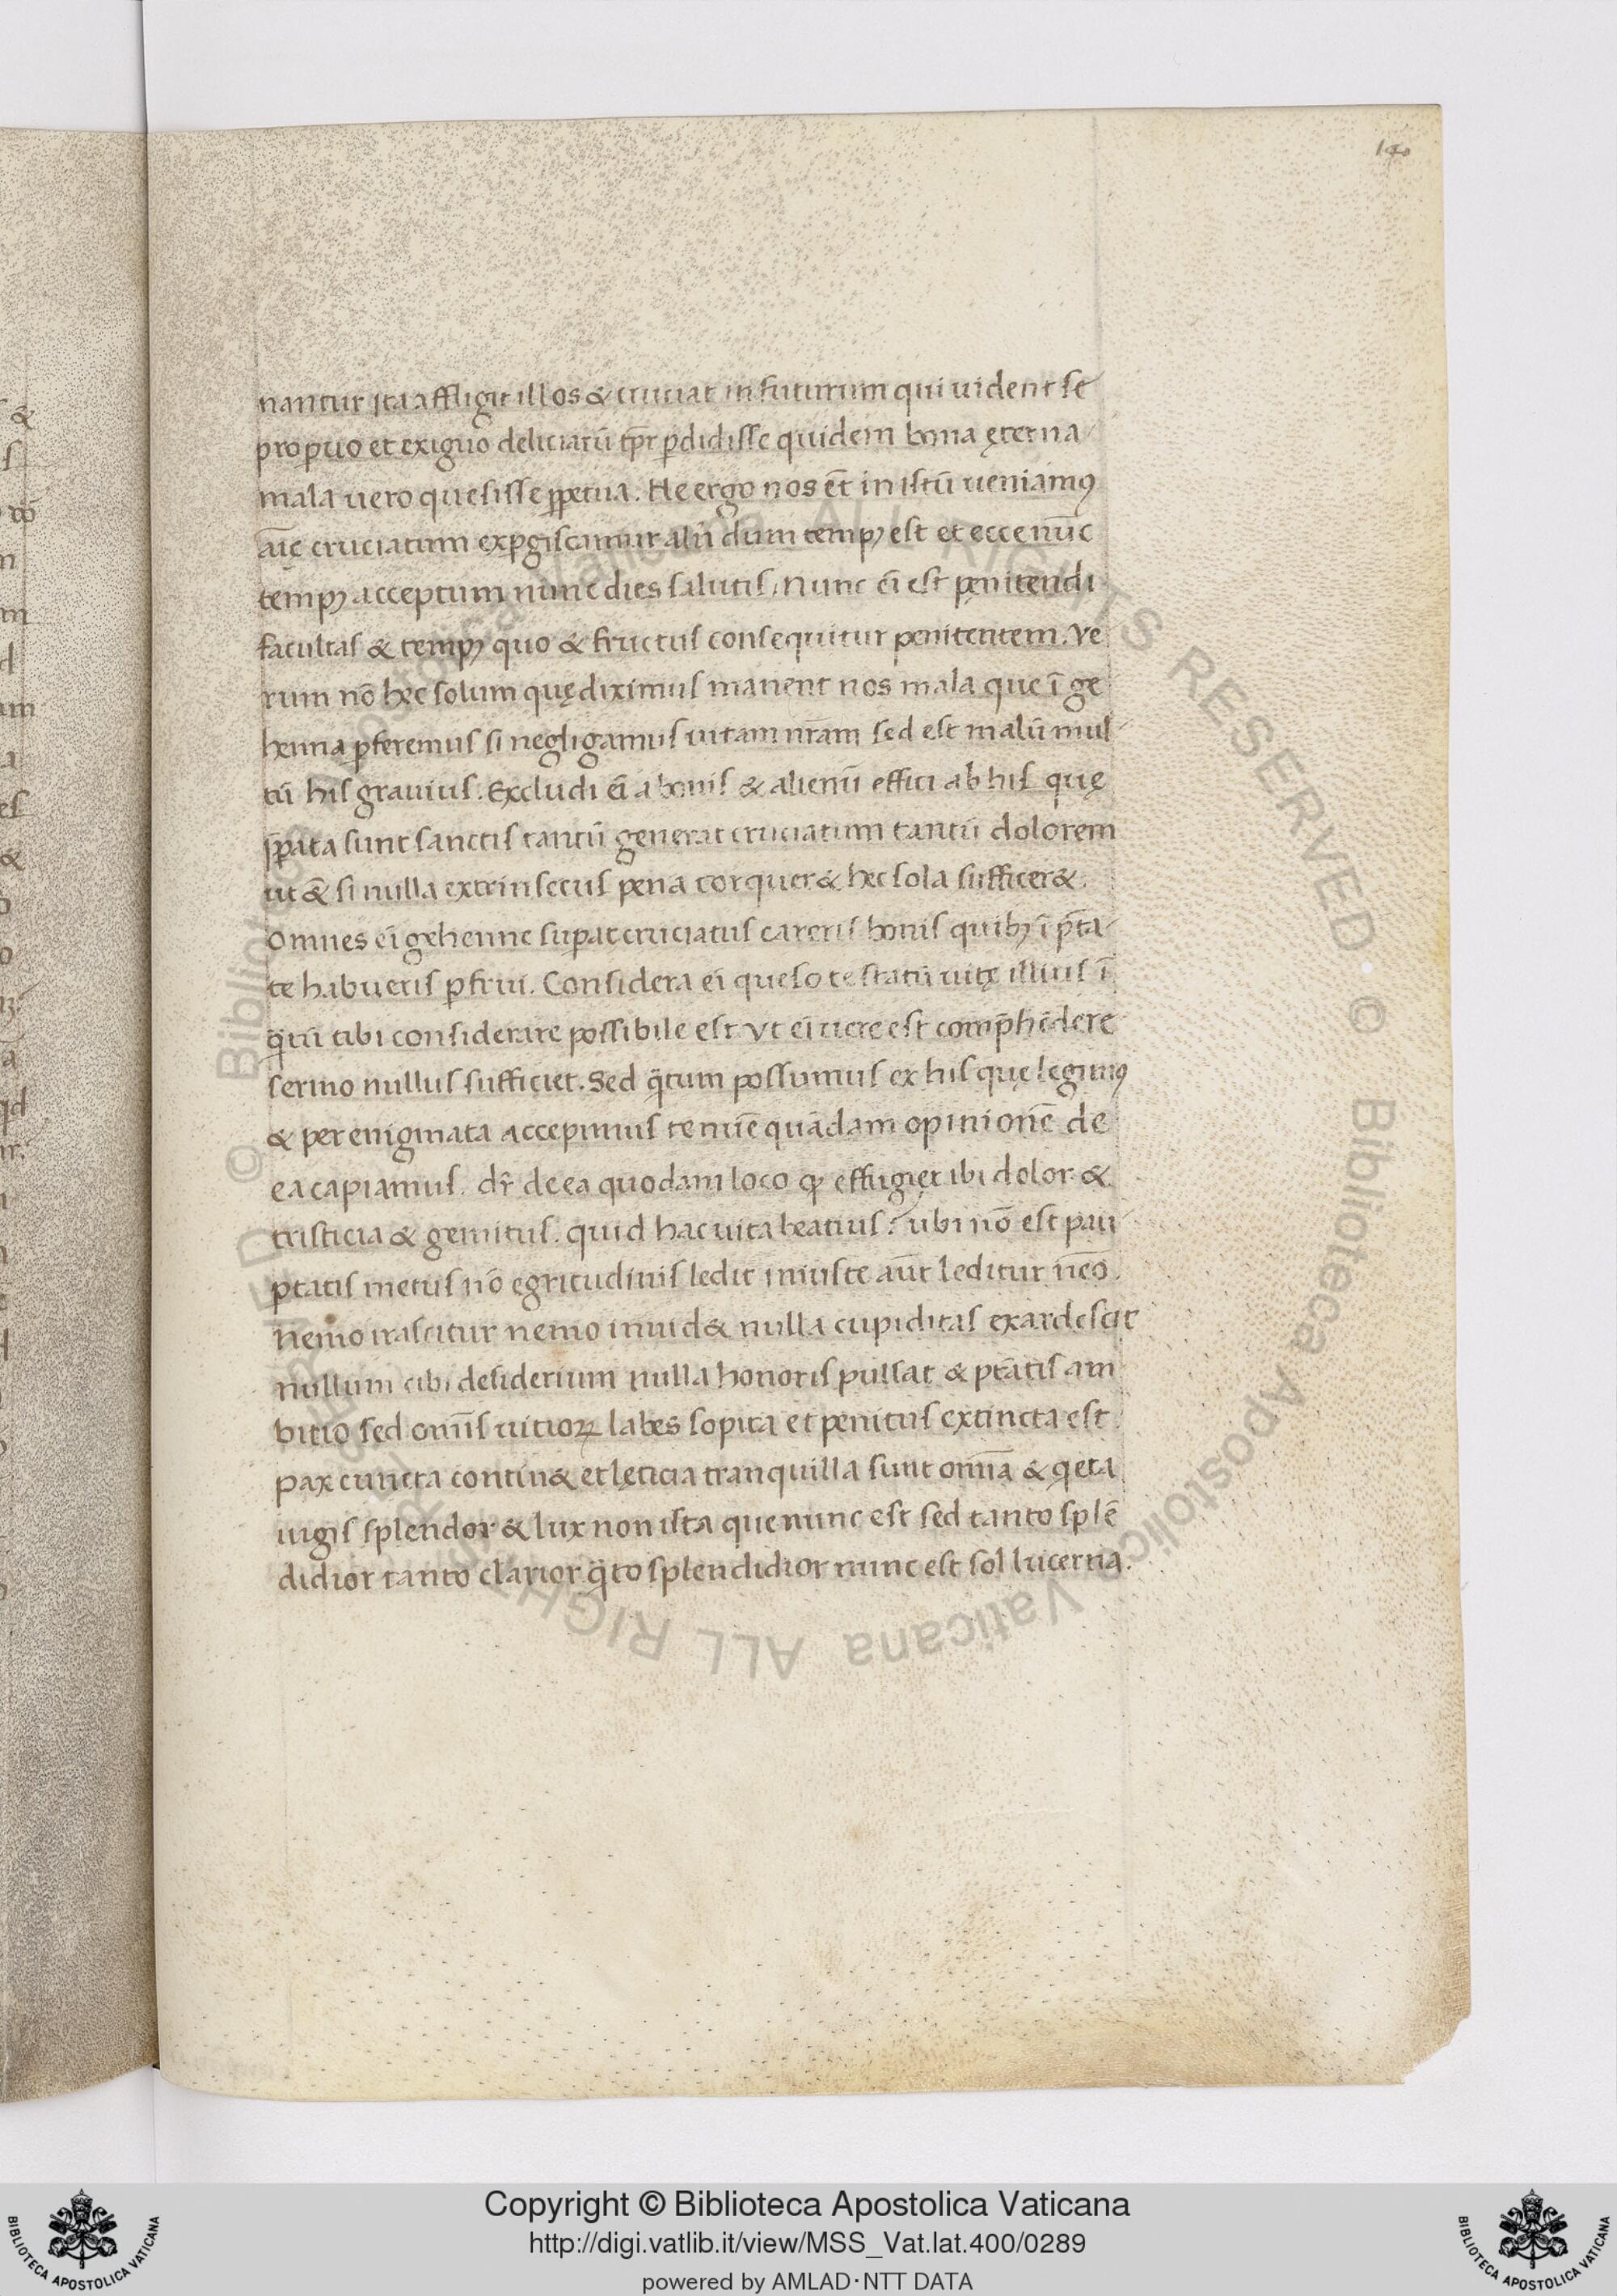 140
nantur ita affligit illos & cruciat in futurum qui uident se
pro puo et exiguo deliciarū tp̄r p̄didisse quidem bona ęterna
mala uero quesisse ꝑpetua. Ne ergo nos et̄ in istū ueniamꝰ
aīę cruciatum exꝑgiscamur alr̄i dum tempꝰ est et ecce nūc
tempꝰ acceptum nunc dies salutis. Nunc ei̅ est penitendi
facultas & tempꝰ quo & fructus consequitur penitentem. Ve
rum nō hec solum quę diximus manent nos mala que ī ge
henna ꝑferemus si negligamus uitam nr̄am sed est malū mul
tū his grauius. Excludi ei̅ a bonis & alienū effici ab his quę
p̄ata sunt sanctis tantū generat cruciatum tantū dolorem
ut & si nulla extrinsecus pena torquer& hec sola sufficer&.
Omnes ei̅ gehenne suꝑat cruciatus careris bonis quibꝰ ī p̄ta
te habueris ꝑfrui. Considera ei̅ queso te statū uitę illius ī
q̄tū tibi considerare possibile est vt ei̅ uere est comp̄hēdere
sermo nullus sufficiet. Sed q̄tum possumus ex his quę legimꝰ
& per enigmata accepimus tenuē quādam opinionē de
ea capiamus. dr̄ de ea quodam loco ꝙ effugiet ibi dolor &
tristicia & gemitus. quid hac uita beatius? ubi nō est pau
ptatis metus nō egritudinis ledit iniuste aūt leditur nēo.
nemo irascitur nemo inuid& nulla cupiditas exardescit
nullum cibi desiderium nulla honoris pulsat & ptātis am
bitio sed omīs uitioꝝ labes sopita et penitus extincta est.
pax cuncta contin& et lęticia tranquilla sunt om̄ia & q̇eta
iugis splendor & lux non ista que nunc est sed tanto splē
didior tanto clarior q̄to splendidior nunc est sol lucerna.
© Biblioteca Apostolica Vaticana ALL RIGHTS RESERVED
Copyright © Biblioteca Apostolica Vaticana
http://digi.vatlib.it/view/MSS_Vat.lat.400/0289
powered by AMLAD·NTT DATA
BIBLIOTECA APOSTOLICA VATICANA
BIBLIOTECA APOSTOLICA VATICANA